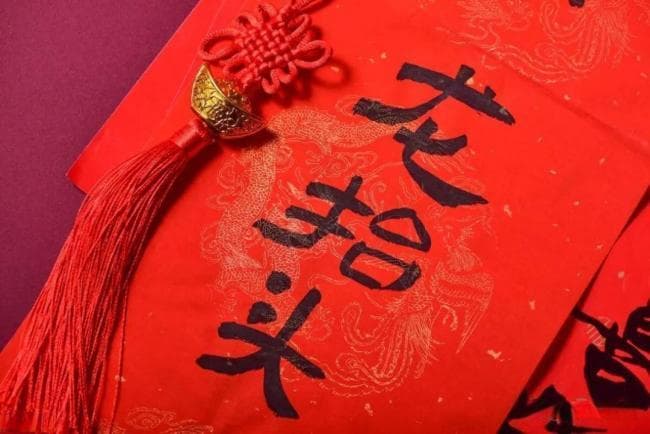 龙抬头